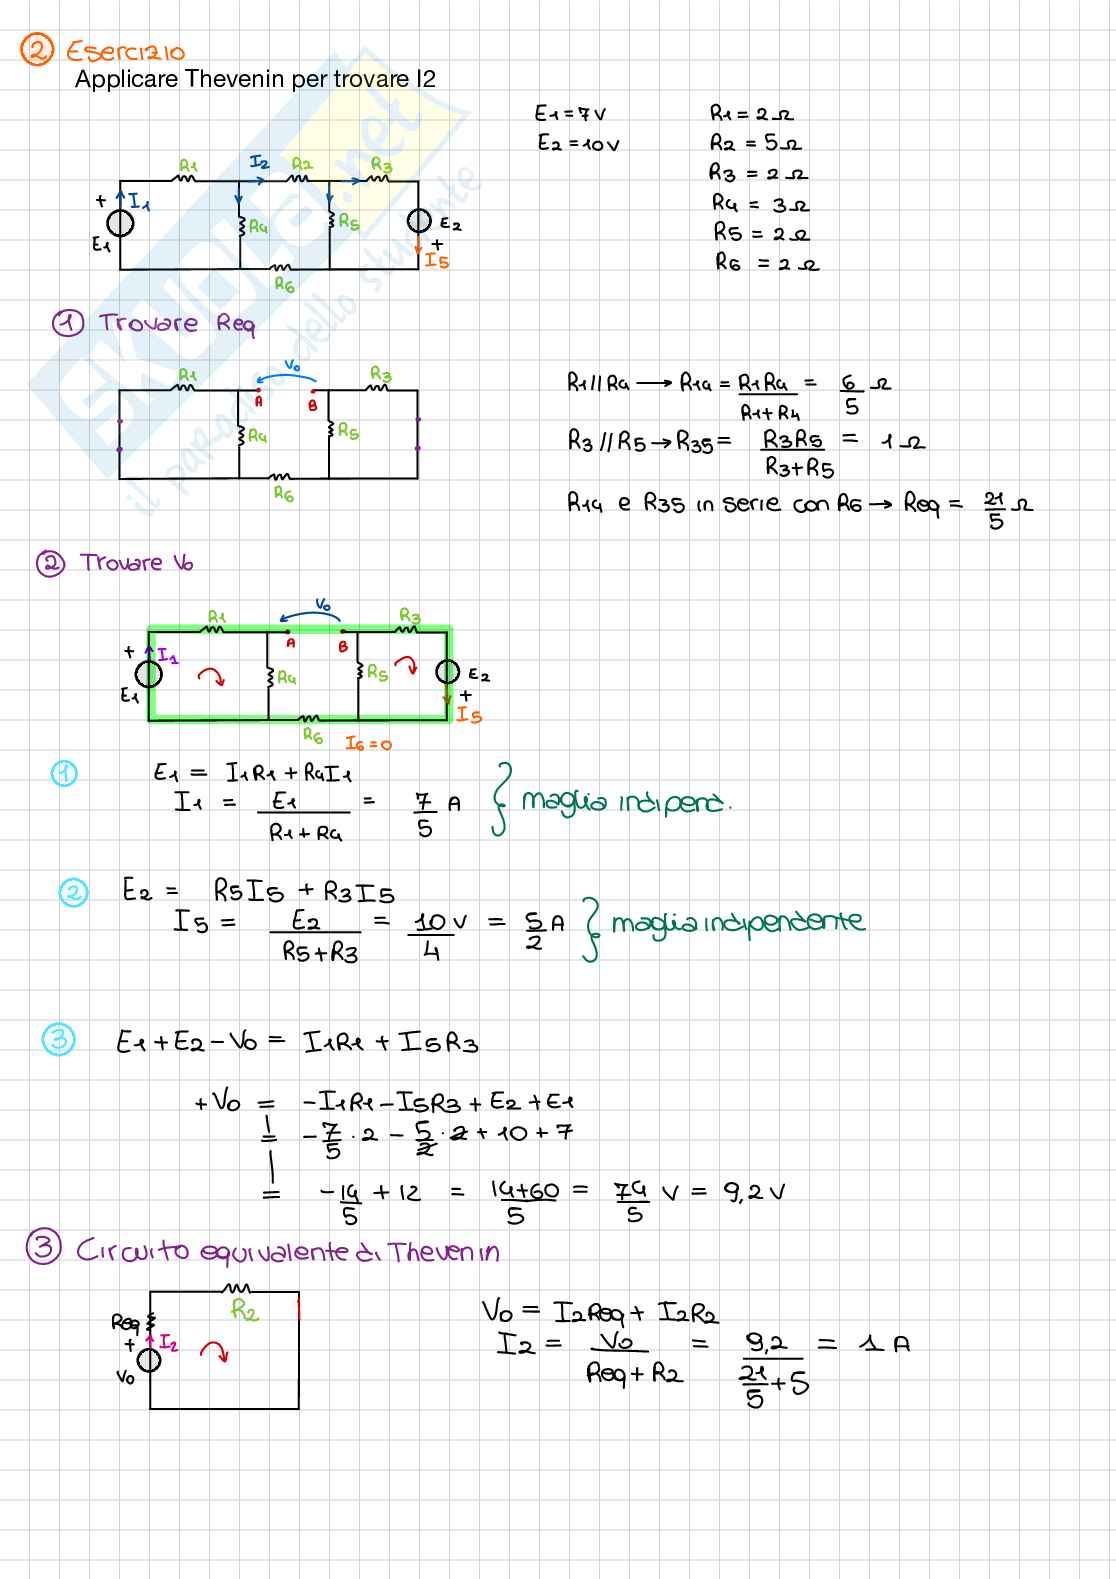 ② Esercizio
Applicare Thevenin per trovare I2
E1 = 7V
E2 = 10V
R1 = 2Ω
R2 = 5Ω
R3 = 2Ω
R4 = 3Ω
R5 = 2Ω
R6 = 2Ω
R1 I2 R2 R3
+ I1 R4 R5 E2
E1 + I5
R6
① Trovare Req
R1 V0 R3
A B
R4 R5
R6
R1//R4 → R14 = R1R4/(R1+R4) = 6/5 Ω
R3//R5 → R35 = R3R5/(R3+R5) = 1Ω
R14 e R35 in serie con R6 → Req = 21/5 Ω
② Trovare V0
R1 V0 R3
A B
+ I1 R4 R5 E2
E1 + I5
R6 I6=0
① E1 = I1R1 + R4I1
I1 = E1/(R1+R4) = 7/5 A } maglia indipend.
② E2 = R5I5 + R3I5
I5 = E2/(R5+R3) = 10V/4 = 5/2 A } maglia indipendente
③ E1+E2-V0 = I1R1 + I5R3
+V0 = -I1R1-I5R3+E2+E1
= -7/5·2 - 5/2·2+10+7
= -14/5 + 12 = 14+60/5 = 74/5 V = 9,2V
③ Circuito equivalente di Thevenin
R2
Req
+ I2
V0
V0 = I2Req + I2R2
I2 = V0/(Req+R2) = 9,2/(21/5+5) = 1A
SKUOLA.net
il paradiso dello studente